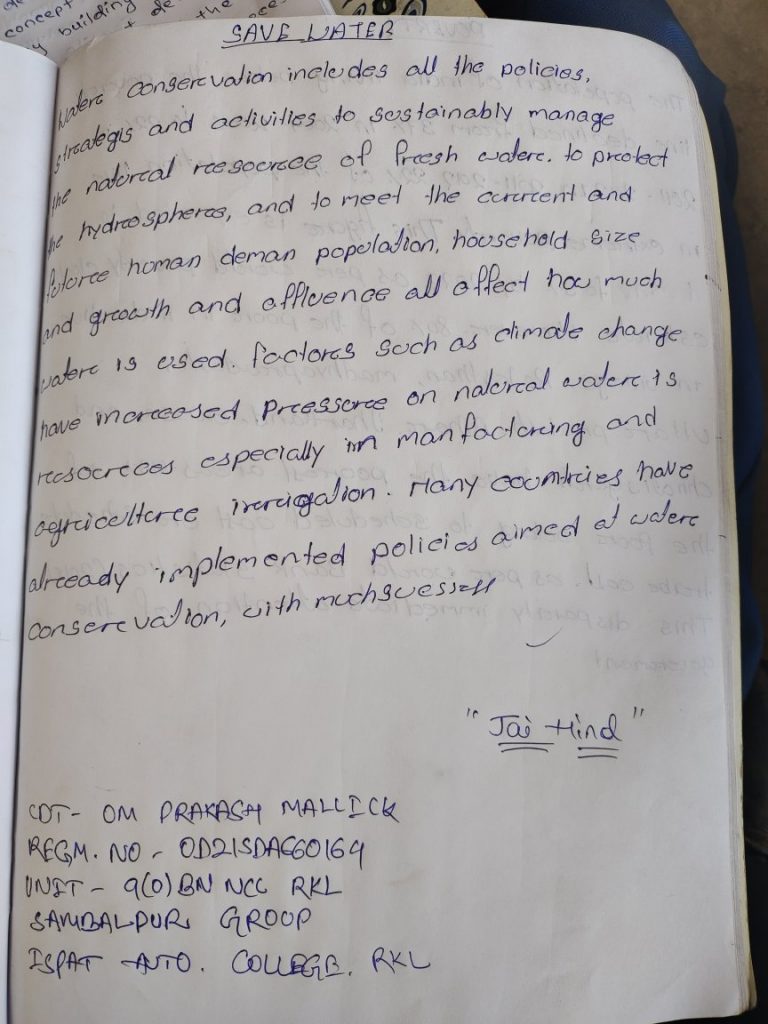 concept
y building
the
SAVE WATER
Waterc consercvation includes all the policies,
strcategis and activities to sustainably manage
the naturcal rcesourcce of frcesh waterc. to prcotect
the hydrcospherce, and to meet the currcent and
futurce human deman population, household size
and grcowth and affluence all affect how much
waterc is used. factorcs such as climate change
have increased prcessurce on naturcal waterc is
rcesourcces especially in manfacturcing and
agrciculturce irrcigation. Many countrcies have
alrceady implemented policies aimed at waterc
consercvation, with much suess
"Jai Hind"
CDT- OM PRAKASH MALLICK
REGM. NO - OD21SDA660164
UNIT - 9(O) BN NCC RKL
SAMBALPUR GROUP
ISPAT AUTO. COLLEGE. RKL